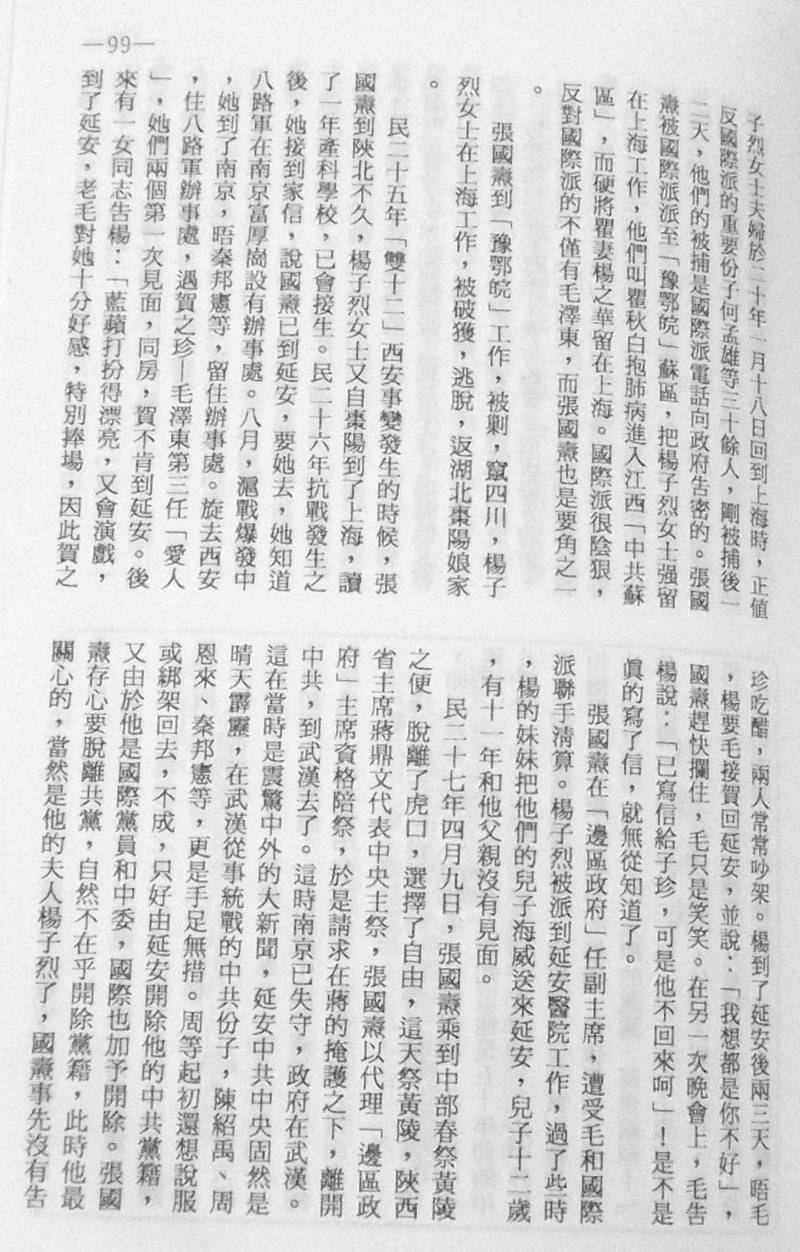 —99—
子烈女士夫婦於二十年一月十八日回到上海時，正值
反國際派的重要份子何孟雄等三十餘人，剛被捕後一
二天，他們的被捕是國際派電話向政府告密的。張國
燾被國際派派至「豫鄂皖」蘇區，把楊子烈女士强留
在上海工作，他們叫瞿秋白抱肺病進入江西「中共蘇
區」，而硬將瞿妻楊之華留在上海。國際派很陰狠，
反對國際派的不僅有毛澤東，而張國燾也是要角之一
。
張國燾到「豫鄂皖」工作，被剿，竄四川，楊子
烈女士在上海工作，被破獲，逃脫，返湖北棗陽娘家
。
民二十五年「雙十二」西安事變發生的時候，張
國燾到陝北不久，楊子烈女士又自棗陽到了上海，讀
了一年產科學校，已會接生。民二十六年抗戰發生之
後，她接到家信，說國燾已到延安，要她去，她知道
八路軍在南京富厚崗設有辦事處。八月，滬戰爆發中
，她到了南京，晤秦邦憲等，留住辦事處。旋去西安
，住八路軍辦事處，遇賀之珍—毛澤東第三任「愛人
」，她們兩個第一次見面，同房，賀不肯到延安。後
來有一女同志告楊：「藍蘋打扮得漂亮，又會演戲，
到了延安，老毛對她十分好感，特別捧場，因此賀之
珍吃醋，兩人常常吵架。楊到了延安後兩三天，晤毛
，楊要毛接賀回延安，並說：「我想都是你不好」，
國燾趕快攔住，毛只是笑笑。在另一次晚會上，毛告
楊說：「已寫信給子珍，可是他不回來呵」！是不是
眞的寫了信，就無從知道了。
張國燾在「邊區政府」任副主席，遭受毛和國際
派聯手清算。楊子烈被派到延安醫院工作，過了些時
，楊的妹妹把他們的兒子海威送來延安，兒子十二歲
，有十一年和他父親沒有見面。
民二十七年四月九日，張國燾乘到中部春祭黃陵
之便，脫離了虎口，選擇了自由，這天祭黃陵，陝西
省主席蔣鼎文代表中央主祭，張國燾以代理「邊區政
府」主席資格陪祭，於是請求在蔣的掩護之下，離開
中共，到武漢去了。這時南京已失守，政府在武漢。
這在當時是震驚中外的大新聞，延安中共中央固然是
晴天霹靂，在武漢從事統戰的中共份子，陳紹禹、周
恩來、秦邦憲等，更是手足無措。周等起初還想說服
或綁架回去，不成，只好由延安開除他的中共黨籍，
又由於他是國際黨員和中委，國際也加予開除。張國
燾存心要脫離共黨，自然不在乎開除黨籍，此時他最
關心的，當然是他的夫人楊子烈了，國燾事先沒有告